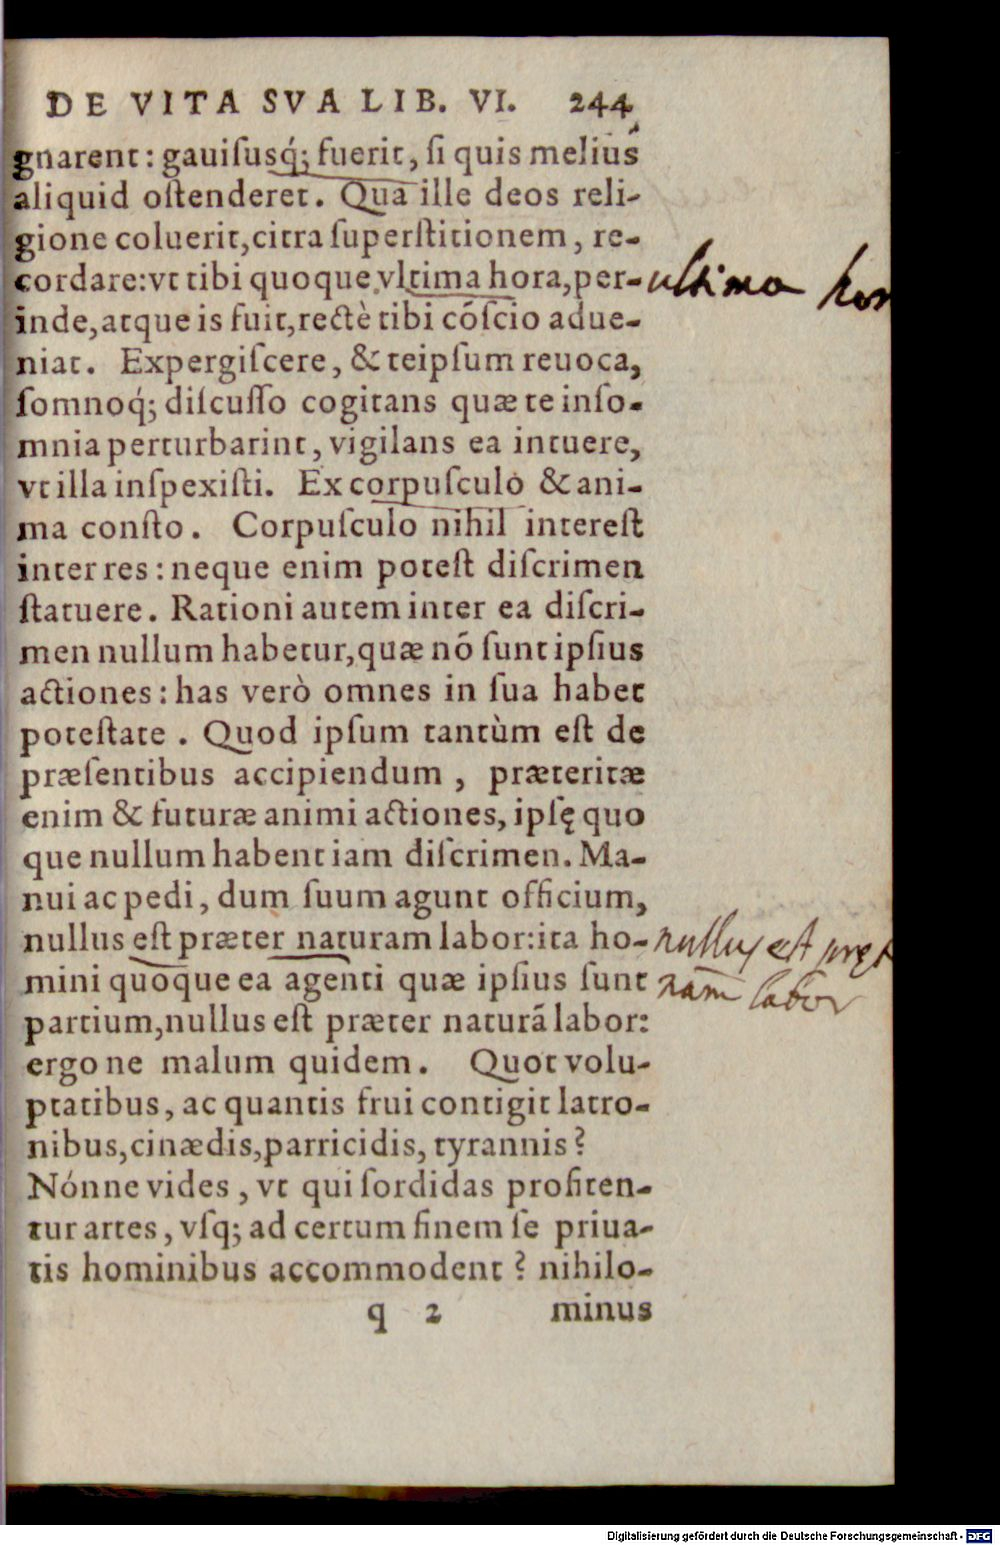 DE VITA SVA LIB. VI. 244
gnarent: gauiſusq́; fuerit, ſi quis meliùs
aliquid oſtenderet. Qua ille deos reli-
gione coluerit, citra ſuperſtitionem, re-
cordare: vt tibi quoque vltima hora, per-
ultima hor
inde, atque is fuit, rectè tibi cõſcio adue-
niat. Expergiſcere, & teipſum reuoca,
ſomnoq́; diſcuſſo cogitans quæ te inſo-
mnia perturbarint, vigilans ea intuere,
vt illa inſpexiſti. Ex corpuſculo & ani-
ma conſto. Corpuſculo nihil intereſt
inter res: neque enim poteſt diſcrimen
ſtatuere. Rationi autem inter ea diſcri-
men nullum habetur, quæ nõ ſunt ipſius
actiones: has verò omnes in ſua habet
poteſtate. Quod ipſum tantùm eſt de
præſentibus accipiendum, præteritæ
enim & futuræ animi actiones, ipſę quo
que nullum habent iam diſcrimen. Ma-
nui ac pedi, dum ſuum agunt officium,
nullus eſt præter naturam labor: ita ho-
nullus est pręt
mini quoque ea agenti quæ ipſius ſunt
nām labor
partium, nullus eſt præter naturã labor:
ergo ne malum quidem. Quot volu-
ptatibus, ac quantis frui contigit latro-
nibus, cinædis, parricidis, tyrannis?
Nónne vides, vt qui ſordidas profiten-
tur artes, vſq; ad certum finem ſe priua-
tis hominibus accommodent? nihilo-
q 2 minus
Digitalisierung gefördert durch die Deutsche Forschungsgemeinschaft - DFG